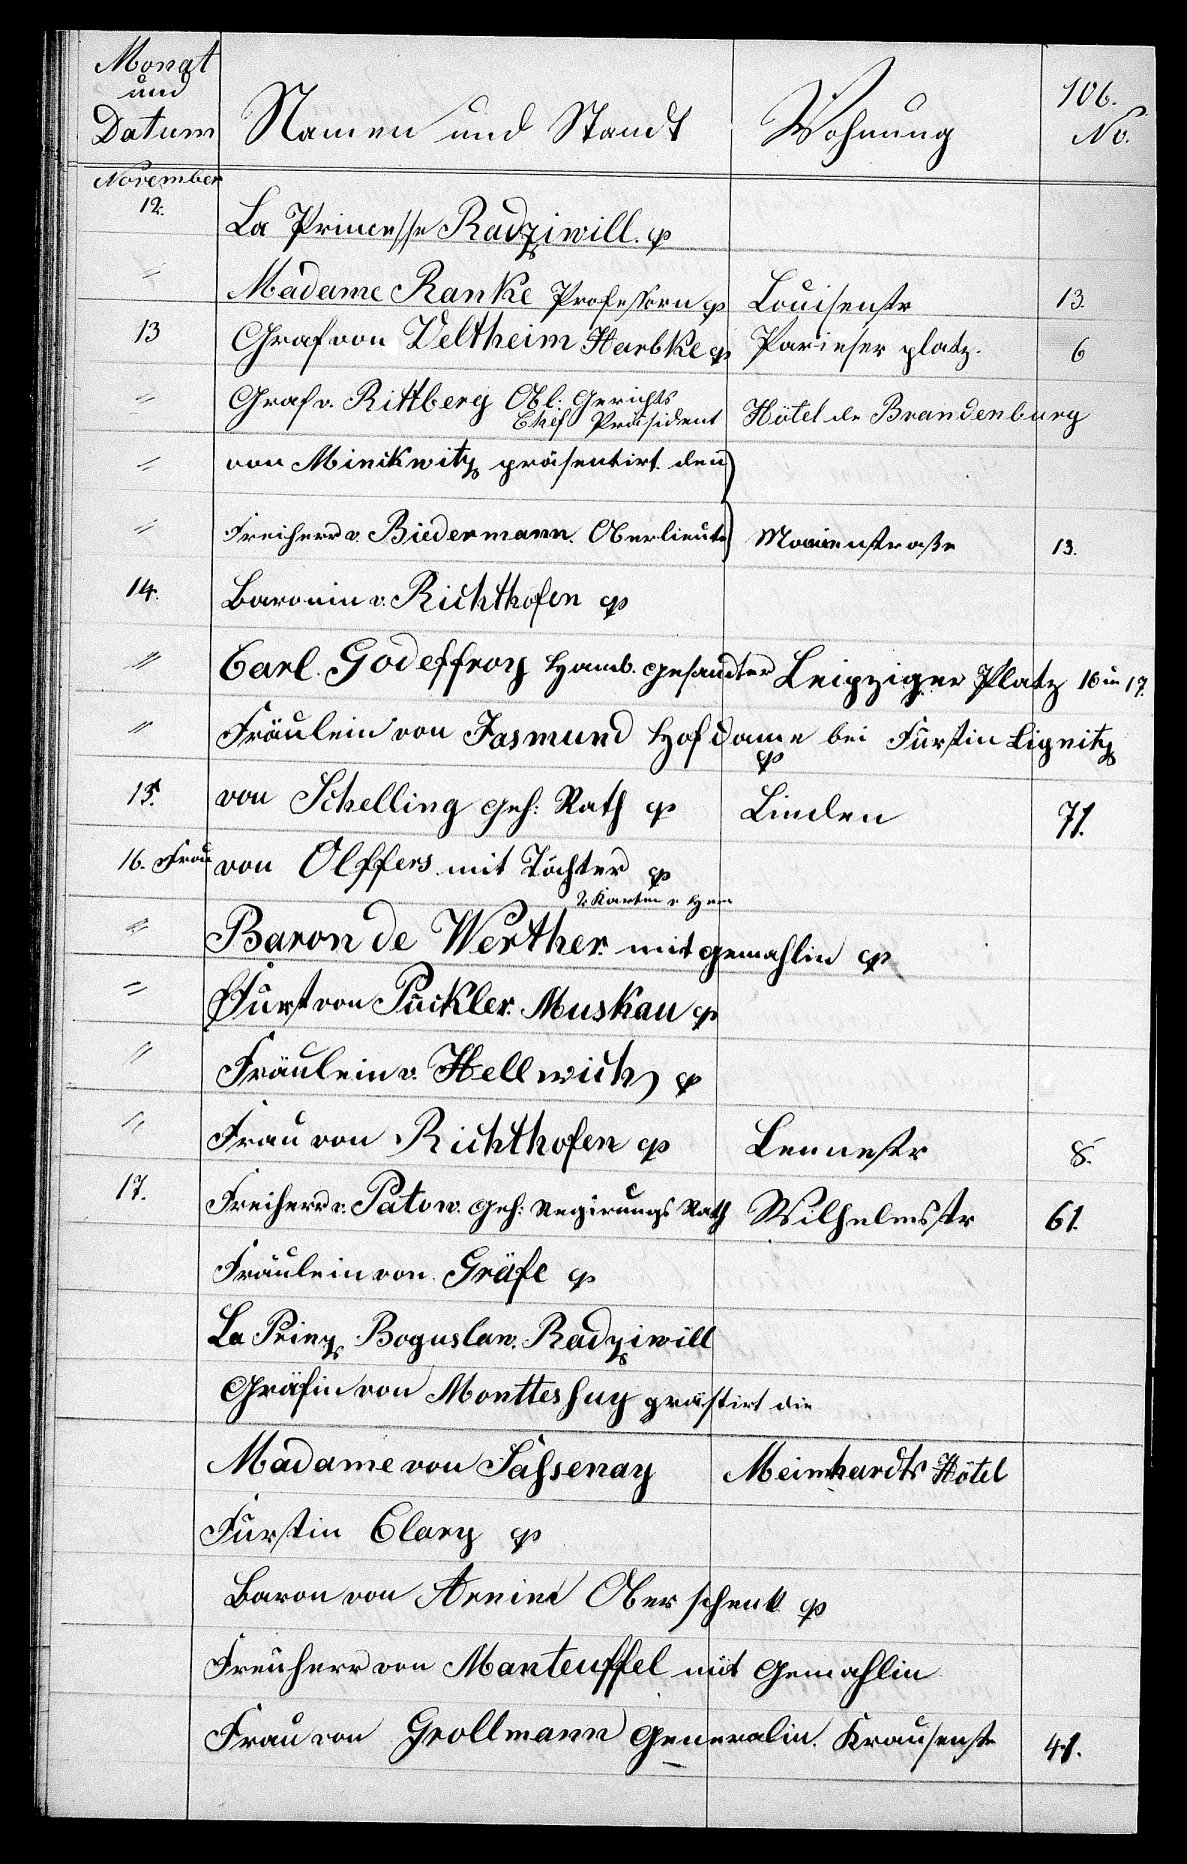 Monat und Datum | Namen und Standt | Wohnung | 106. No.
November
12. La Princesse Radziwill. p
" Madame Ranke Professorn p Louisenstr 13.
13 Graf von Veltheim Harbke p Parieser platz. 6
" Graf v. Rittberg Obl: Gerichts
Chef Präsident Hôtel de Brandenburg
" von Minckwitz präsentirt den
" Freiherr v. Biedermann. Oberlieut Marienstraße 13.
14. Baronin v. Richthofen p
" Carl. Godeffroy Hamb. gesandter Leipziger Platz 16 u 17.
" Fräulein von Jasmund Hofdame bei Fürstin Liegnitz
p
15. von Schelling geh: Rath p Linden 71.
16. Frau von Olffers mit Töchter p
2 Karten v Hrn
" Baron de Werther. mit gemahlin p
" Fürst von Pückler. Muskau p
" Fräulein v. Hellwich p
" Frau von Richthofen p Lennestr 8.
17. Freiherr v. Patow. geh: Regirungs Rath Wilhelmsstr 61.
Fräulein von Gräfe p
La Prinz. Boguslaw. Radziwill
Gräfin von Montteshuy präsentirt die
Madame von Sassenay Meinhardts Hôtel
Fürstin Clary p
Baron von Arnim Ober schenk p
Freuherr von Manteuffel mit Gemahlin
Frau von Grollmann Generalin. Krausenstr 41.